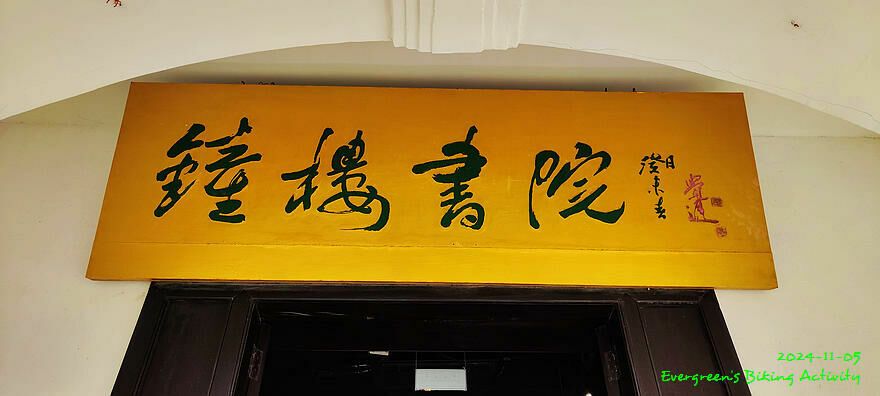 鐘樓書院
2024-11-05
Evergreen's Biking Activity